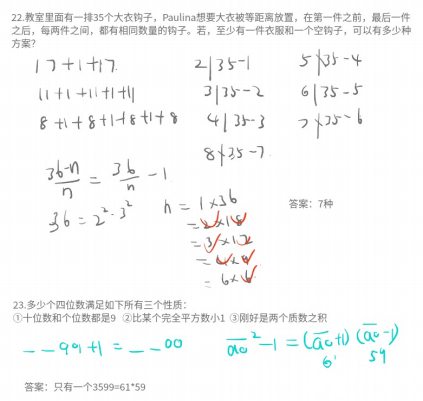 22.教室里面有一排35个大衣钩子，Paulina想要大衣被等距离放置，在第一件之前，最后一件
之后，每两件之间，都有相同数量的钩子。若，至少有一件衣服和一个空钩子，可以有多少种
方案？
17+1+17
2|35-1
5|35-4
11+1+11+1+11
3|35-2
6|35-5
8+1+8+1+8+1+8
4|35-3
7×35-6
8×35-7
(36-n)/n = 36/n - 1
n = 1×36
答案：7种
36=2²·3²
=2×18
=3×12
=4×9
=6×6
23.多少个四位数满足如下所有三个性质：
①十位数和个位数都是9 ②比某个完全平方数小1 ③刚好是两个质数之积
_ _99+1=_ _00
a0²-1=(a0+1)(a0-1)
61 59
答案：只有一个3599=61*59